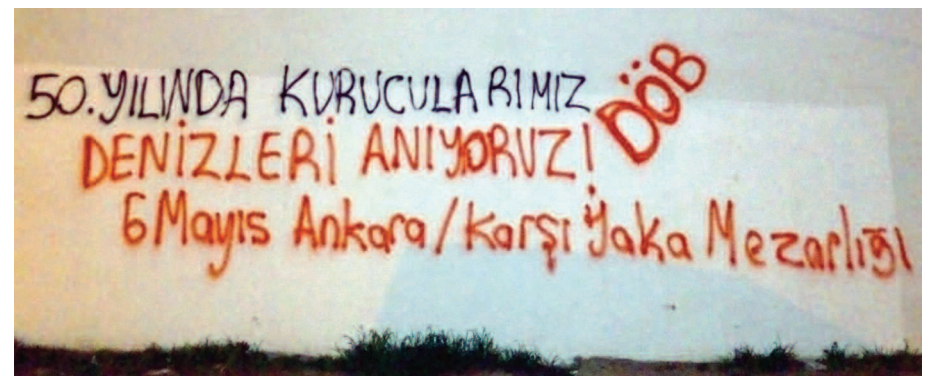 50.YILINDA KURUCULARIMIZ
DENİZLERİ ANIYORUZ!
DÖB
6 Mayıs Ankara/Karşı Yaka Mezarlığı